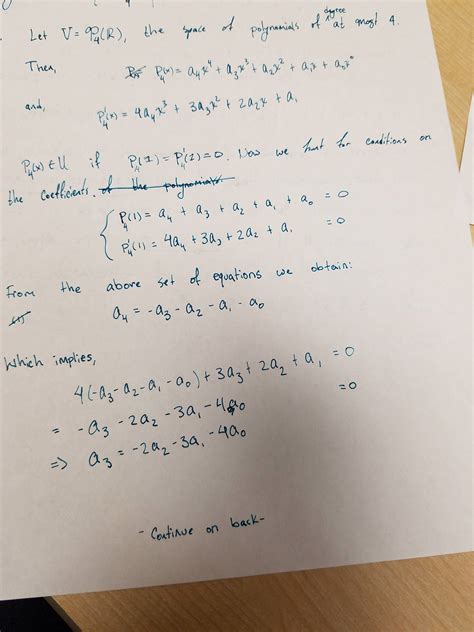 Let V = P₄(ℝ), the space of polynomials of degree at most 4.
Then, P₄(x) = a₄x⁴ + a₃x³ + a₂x² + a₁x + a₀x⁰
and, P₄'(x) = 4a₄x³ + 3a₃x² + 2a₂x + a₁
P₄(x) ∈ U if P₄(1) = P₄'(1) = 0. Now we hunt for conditions on
the coefficients. of the polynomials.
P₄(1) = a₄ + a₃ + a₂ + a₁ + a₀ = 0
P₄'(1) = 4a₄ + 3a₃ + 2a₂ + a₁ = 0
From the above set of equations we obtain:
a₄ = -a₃ - a₂ - a₁ - a₀
Which implies,
4(-a₃ - a₂ - a₁ - a₀) + 3a₃ + 2a₂ + a₁ = 0
= -a₃ - 2a₂ - 3a₁ - 4a₀ = 0
=> a₃ = -2a₂ - 3a₁ - 4a₀
- Continue on back -